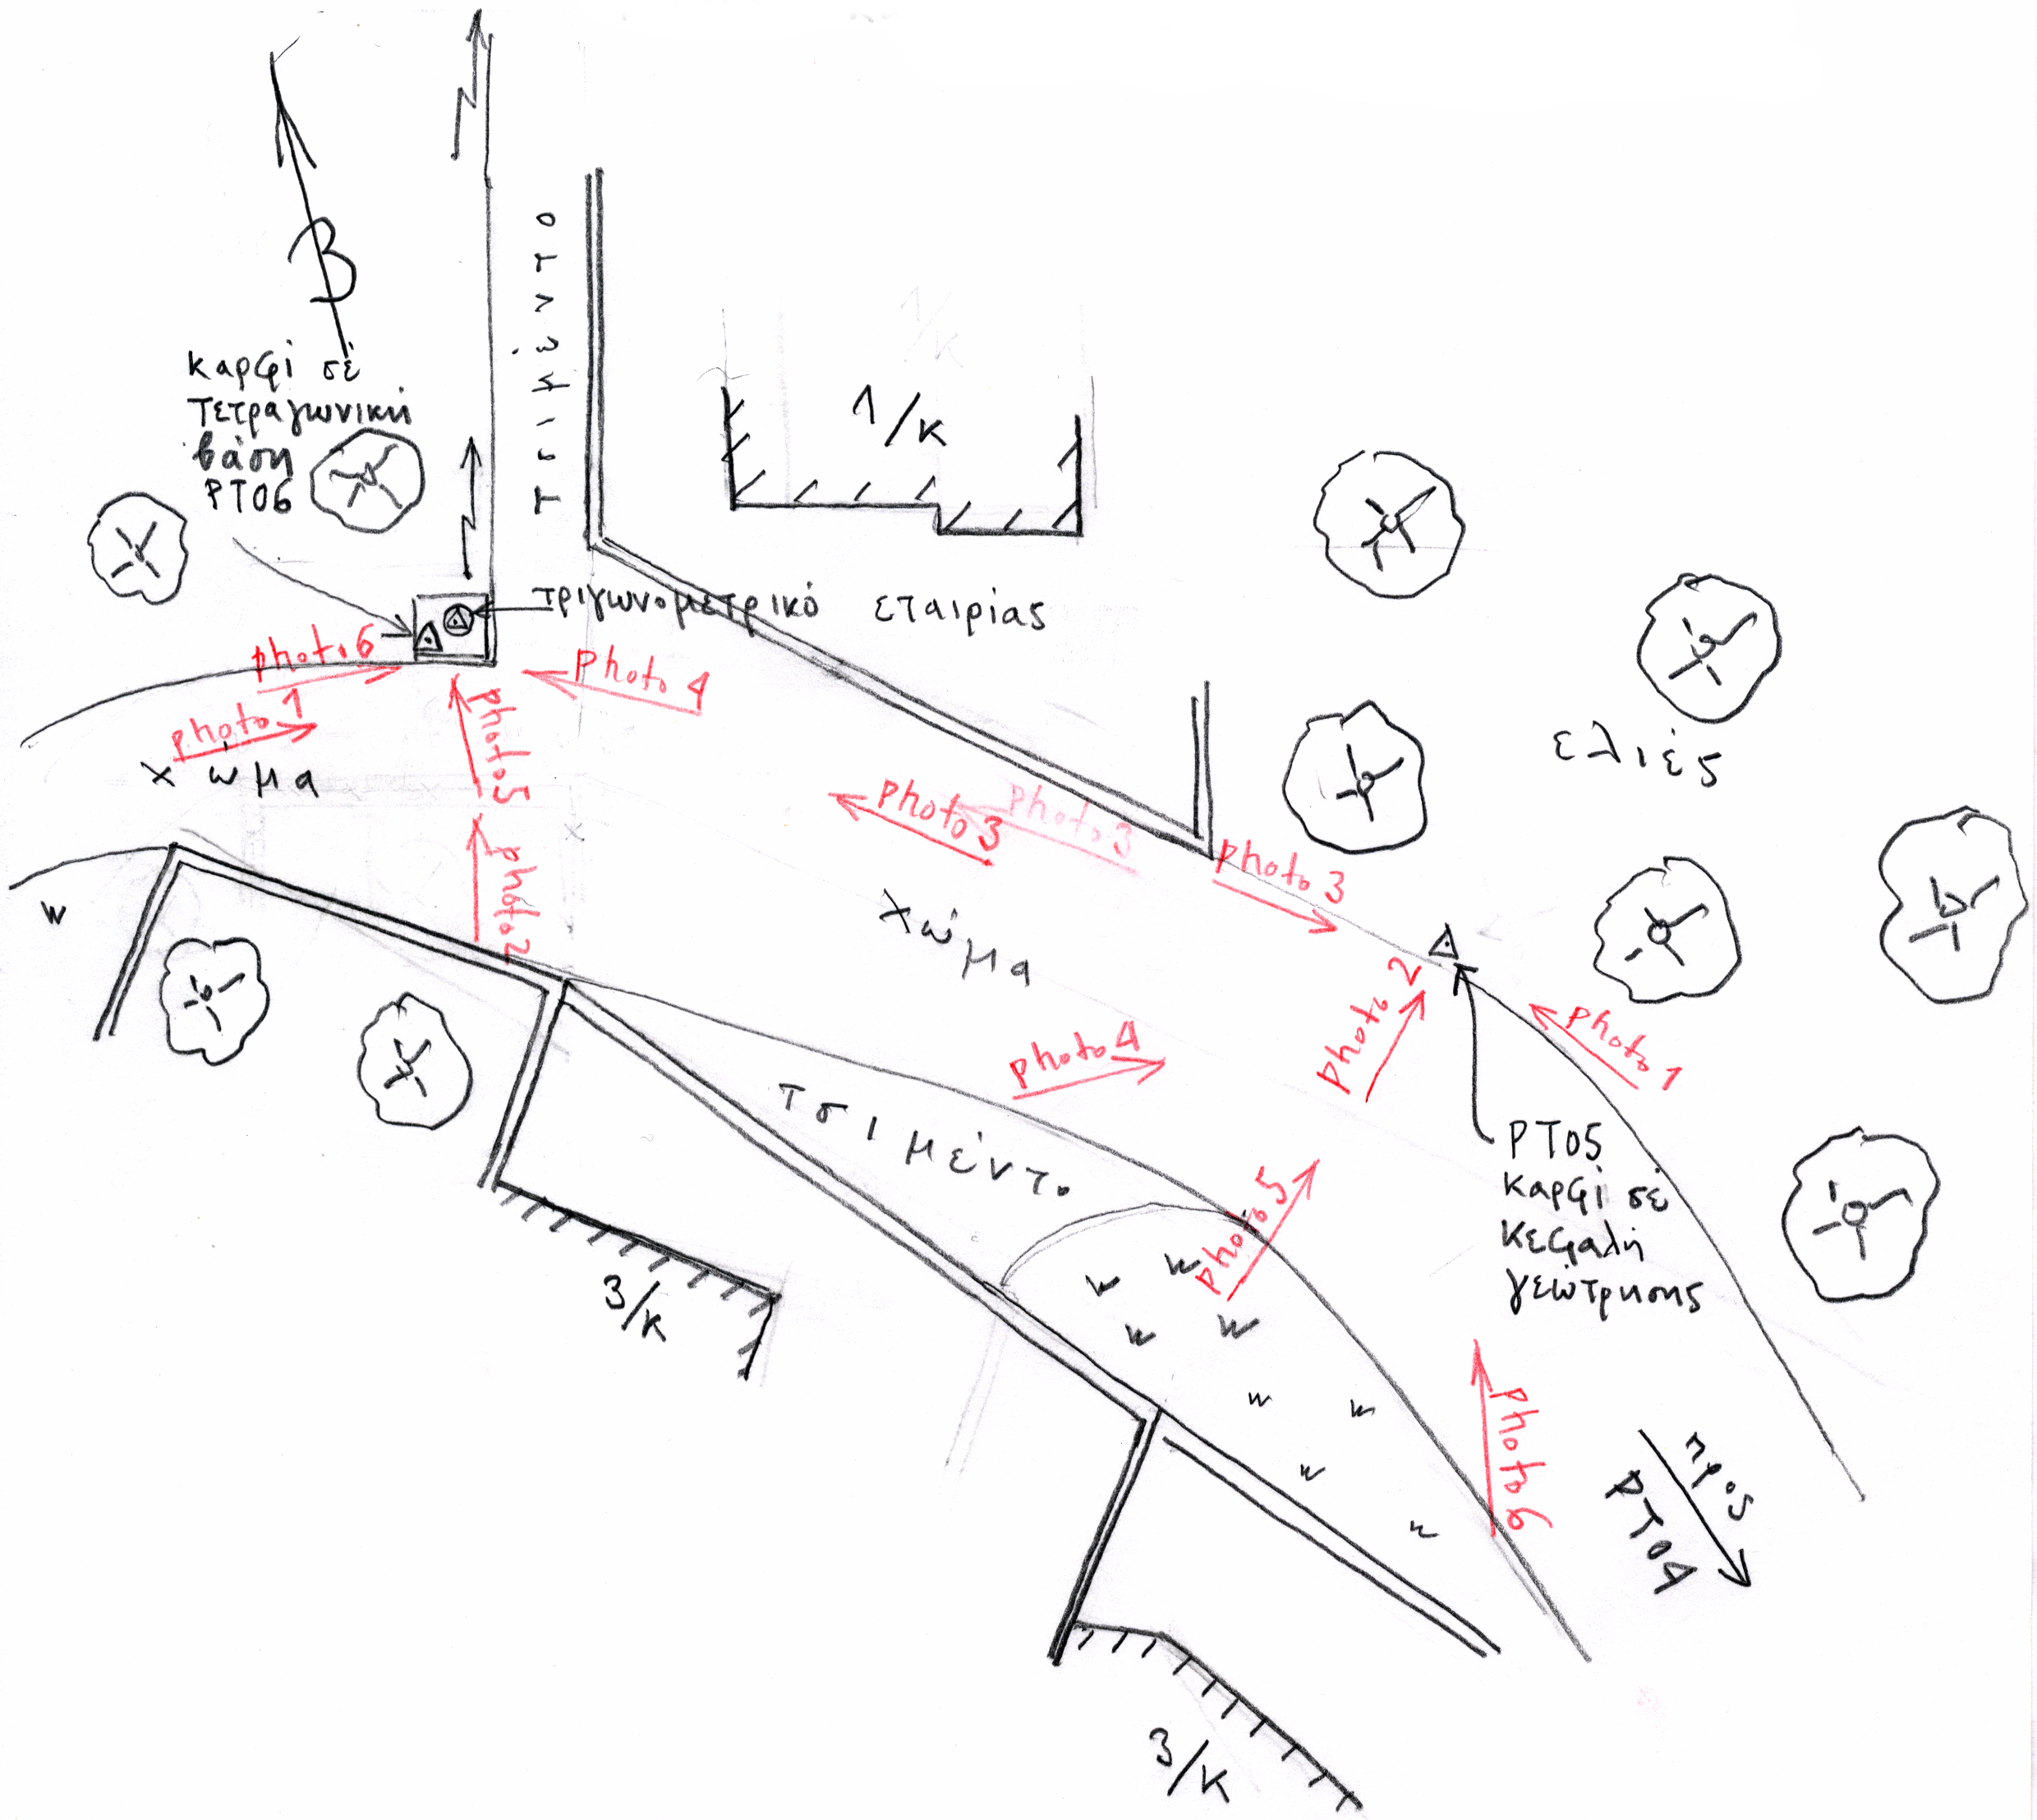 Β
καρφί σέ
τετραγωνική
βάση
PT06
τσιμέντο
1/κ
1/κ
τριγωνομετρικό εταιρίας
photo 6
photo 4
photo 1
χώμα
photo 5
photo 2
ελιές
photo 3
photo 3
photo 3
w
χώμα
photo 2
photo 1
photo 4
τσιμέντο
PT05
καρφί σέ
κεφαλή
γεώτρησης
photo 5
w w
w w
3/κ
w w
photo 6
w
w
προς
PT04
3/κ